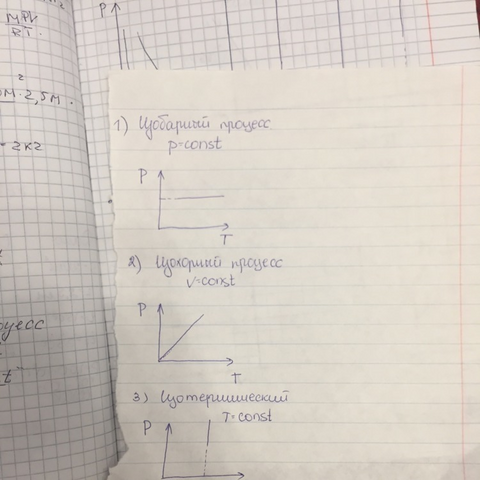 MPV
RT.
P
2
M · 2,5м.
= 2кг
1) Изобарный процесс
p=const
P
T
2) Изохорный процесс
v=const
P
T
3) Изотермический
T=const
P
t"